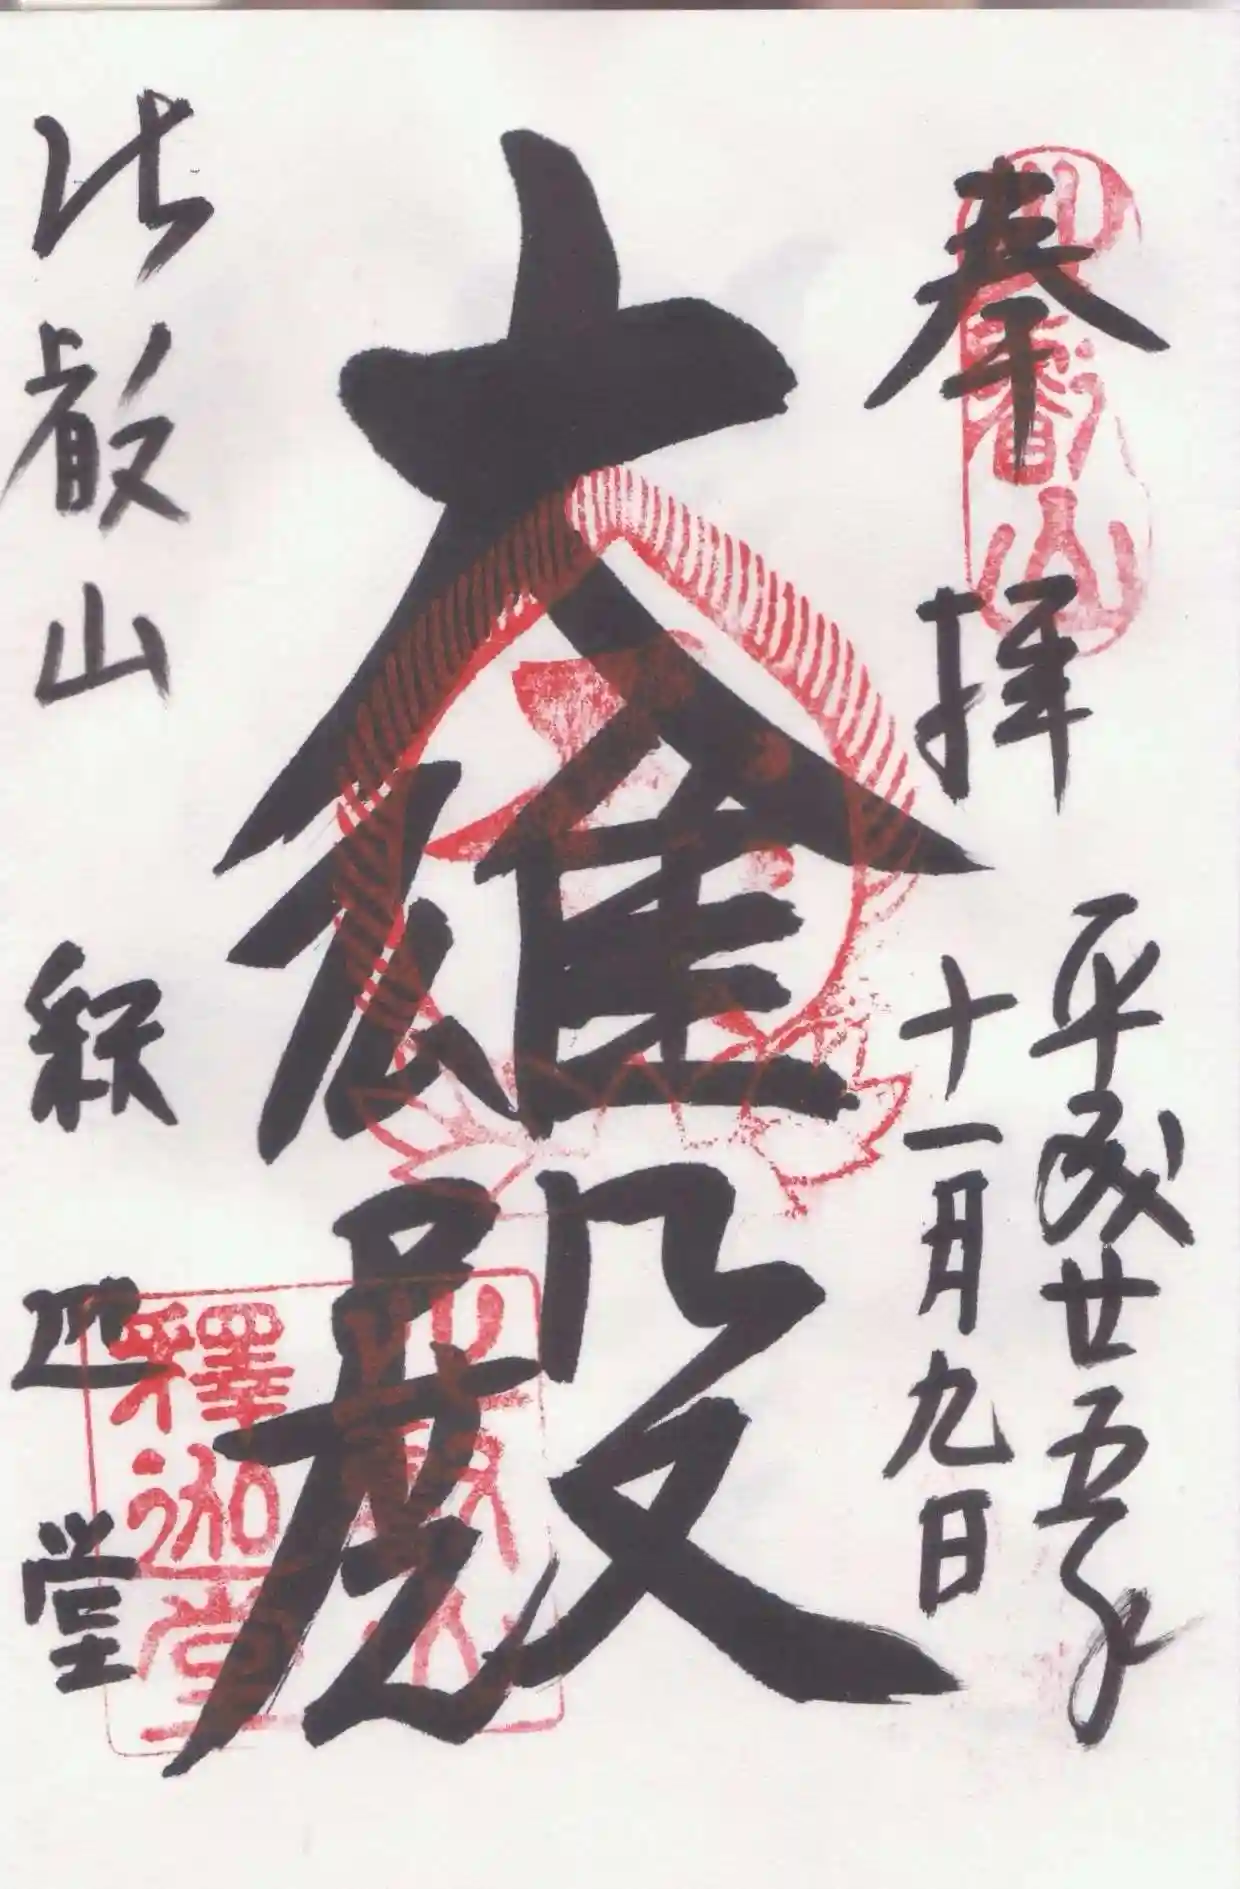 奉拝
平成廿五年
十一月九日
大雄殿
比叡山
釈迦堂
比叡山
釋迦堂